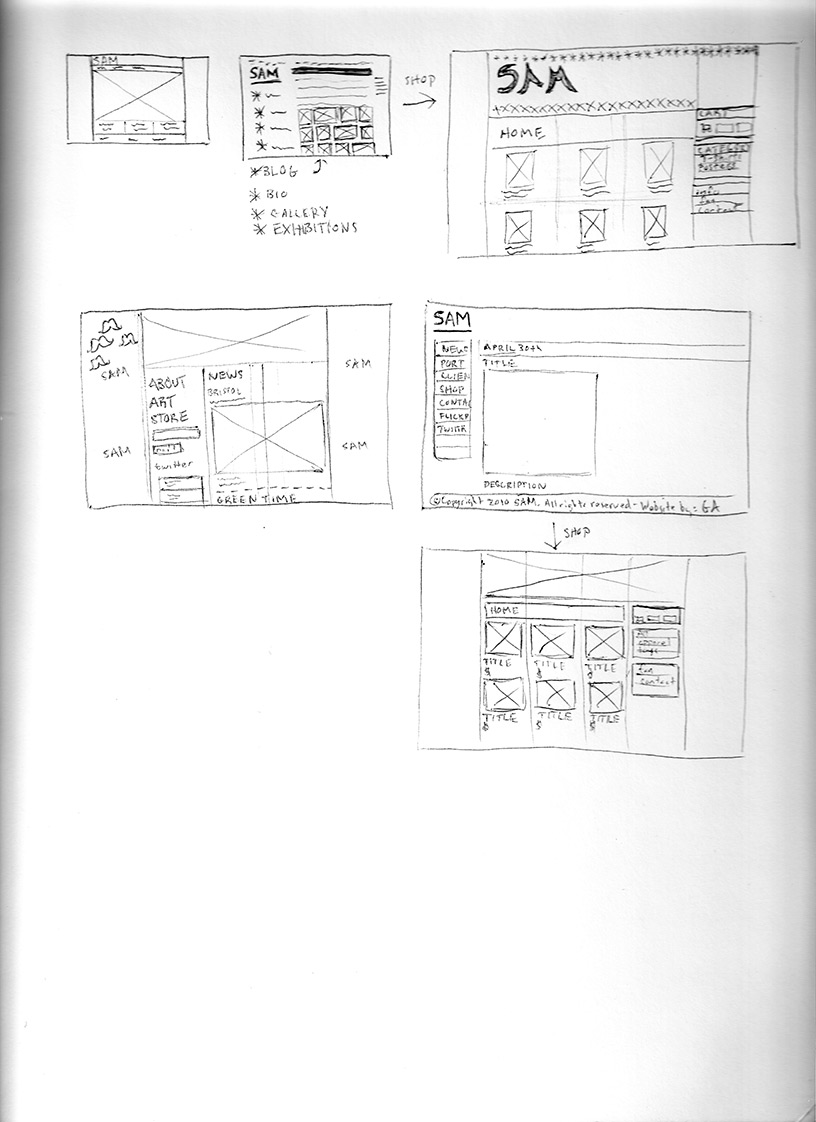 SAM
SAM
BLOG
BIO
GALLERY
EXHIBITIONS
SHOP
SAM
HOME
CART
CATEGOR
T-SHIRTS
POSTERS
info
faq
Contact
SAM
SAM
ABOUT
ART
STORE
twitter
NEWS
BRISTOL
GREEN TIME
SAM
SAM
SAM
NEWS
PORT
CLIEN
SHOP
CONTA
FLICKR
TWITTR
APRIL 30th
TITLE
DESCRIPTION
©Copyright 2010 SAM. All rights reserved - Website by: GA
SHOP
HOME
TITLE TITLE TITLE
$ $ $
TITLE TITLE TITLE
$ $ $
apparel
contact